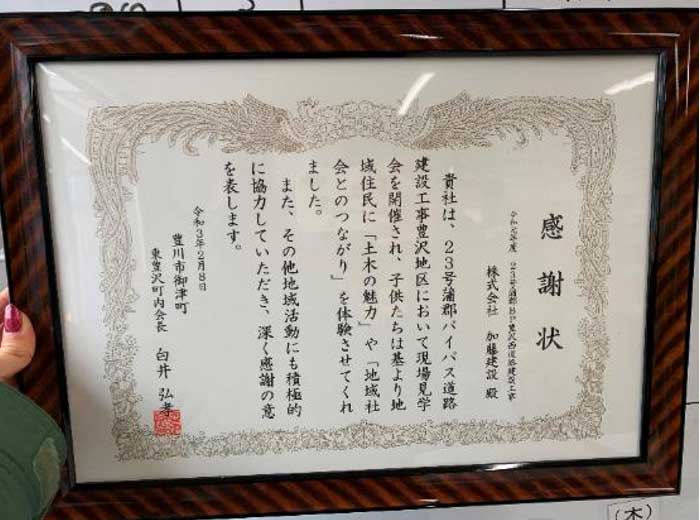 感謝状
令和元年度 23号蒲郡BP豊沢西道路建設工事
株式会社 加藤建設 殿
貴社は、23号蒲郡バイパス道路
建設工事豊沢地区において現場見学
会を開催され、子供たちは基より地
域住民に「土木の魅力」や「地域社
会とのつながり」を体験させてくれ
ました。
また、その他地域活動にも積極的
に協力していただき、深く感謝の意
を表します。
令和3年2月8日
豊川市御津町
東豊沢町内会長 白井 弘孝
(木)